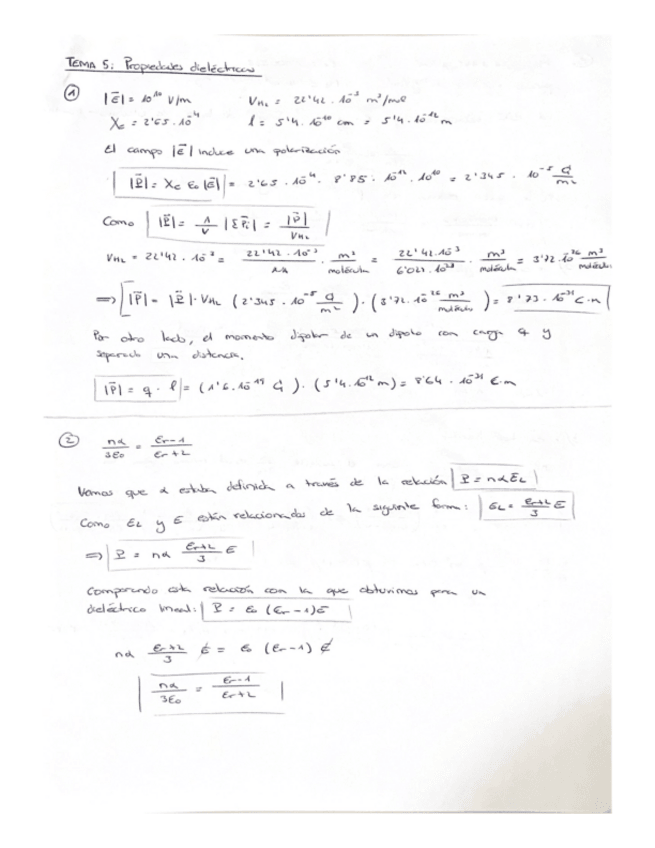 TEMA 5: Propiedades dieléctricas
① |E⃗| = 10¹⁰ V/m V_H₂ = 22'42 · 10⁻³ m³/mol
X_e = 2'65 · 10⁻⁴ l = 5'4 · 10⁻¹⁰ cm = 5'4 · 10⁻¹² m
El campo |E⃗| induce una polarización
|P⃗| = X_e ε₀ |E⃗| = 2'65 · 10⁻⁴ · 8'85 · 10⁻¹² · 10¹⁰ = 2'345 · 10⁻⁵ C/m²
Como |P⃗| = 1/V |Σp⃗i| = |p⃗|/V_H₂
V_H₂ = 22'42 · 10⁻³ = 22'42 · 10⁻³/NA · m³/molécula = 22'42 · 10⁻³/6'023 · 10²³ · m³/molécula = 3'72 · 10⁻²⁶ m³/molécula
⟹ |p⃗| = |P⃗| · V_H₂ (2'345 · 10⁻⁵ C/m²) · (3'72 · 10⁻²⁶ m³/molécula) = 8'73 · 10⁻³¹ C·m
Por otro lado, el momento dipolar de un dipolo con carga q y
separado una distancia,
|p⃗| = q · l = (1'6 · 10⁻¹⁹ C) · (5'4 · 10⁻¹² m) = 8'64 · 10⁻³¹ C·m
② nα/3ε₀ = εr-1/εr+2
Vemos que α estaba definida a través de la relación P = nαE_L
Como E_L y E están relacionados de la siguiente forma: E_L = εr+2/3 E
⟹ P = nα εr+2/3 E
Comparando esta relación con la que obtuvimos para un
dieléctrico lineal: P = ε₀ (εr-1)E
nα εr+2/3 E = ε₀ (εr-1) E
nα/3ε₀ = εr-1/εr+2